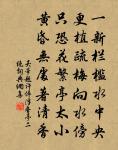 一新欄檻水中央
更植疏梅向水傍
只恐花繁亭太小
黄昏無處著清香